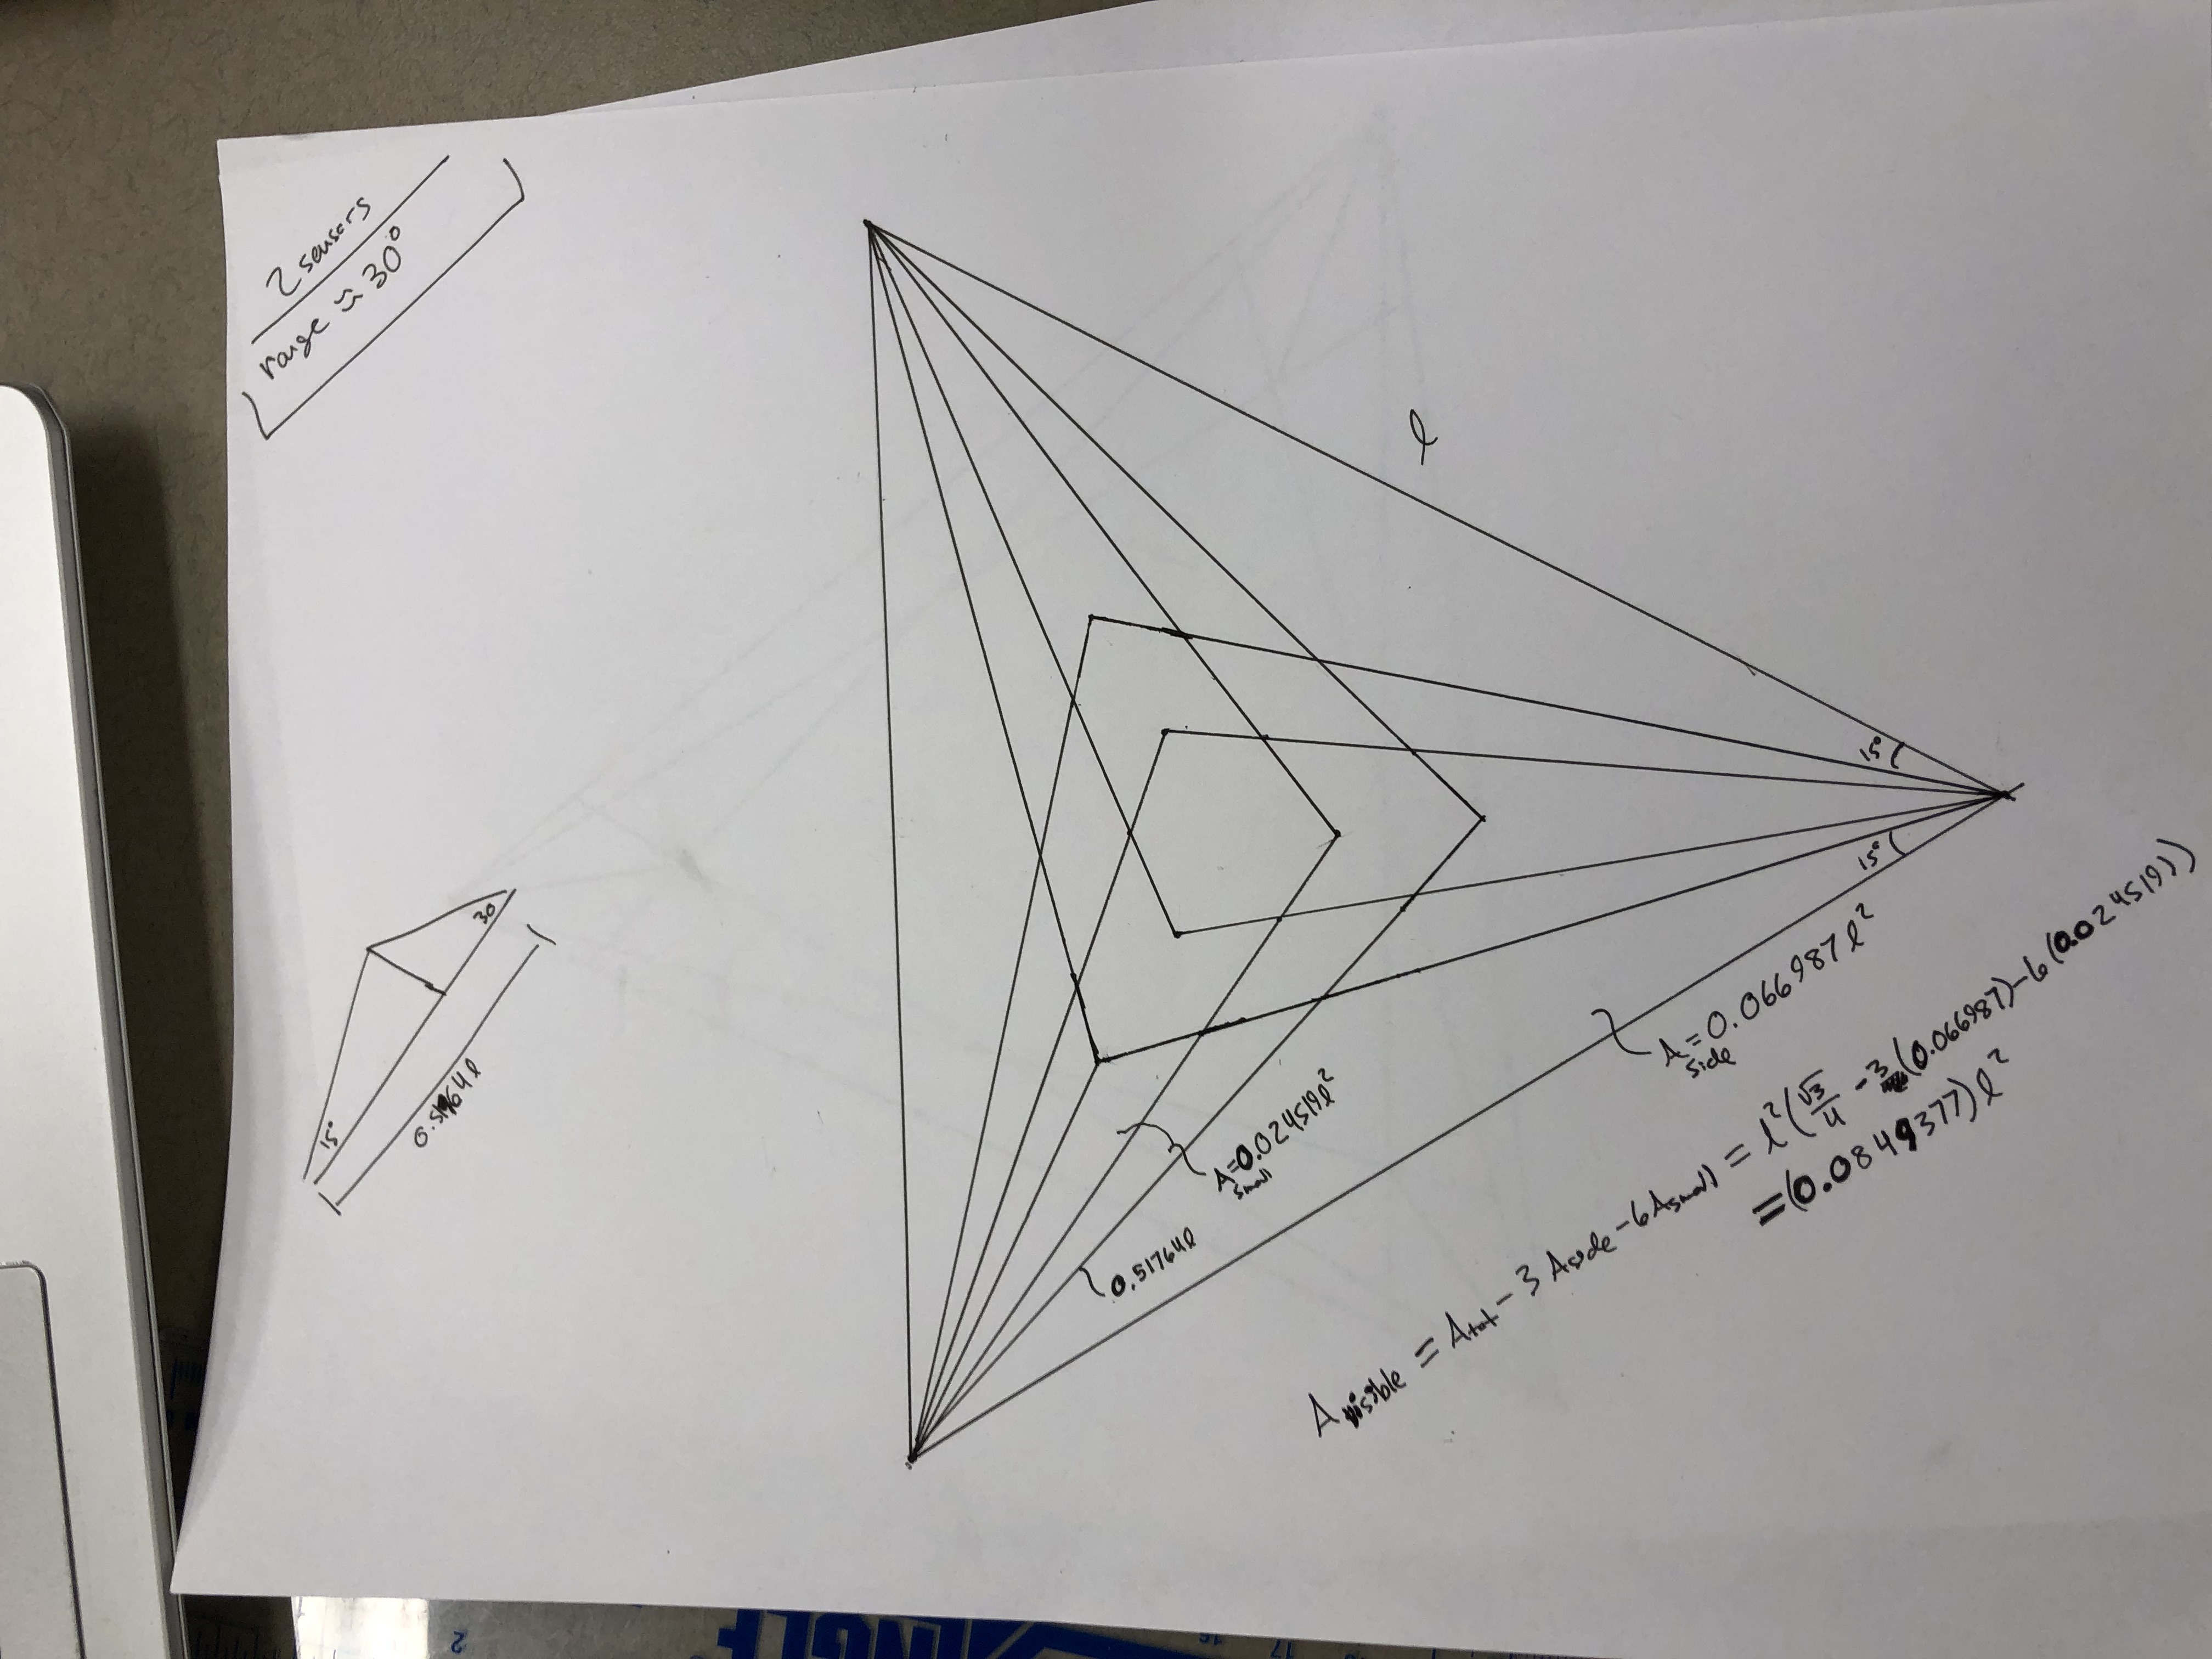 2 sensors
range ≈ 30°
15°
30
0.51764l
0.51764l
A small = 0.024519l²
l
A side = 0.066987l²
15°
15°
A visible = A tot - 3 A side - 6 A small = l²(√3/4 - 3(0.066987) - 6(0.024519))
= (0.0849377)l²
2
16
17
ANGLE